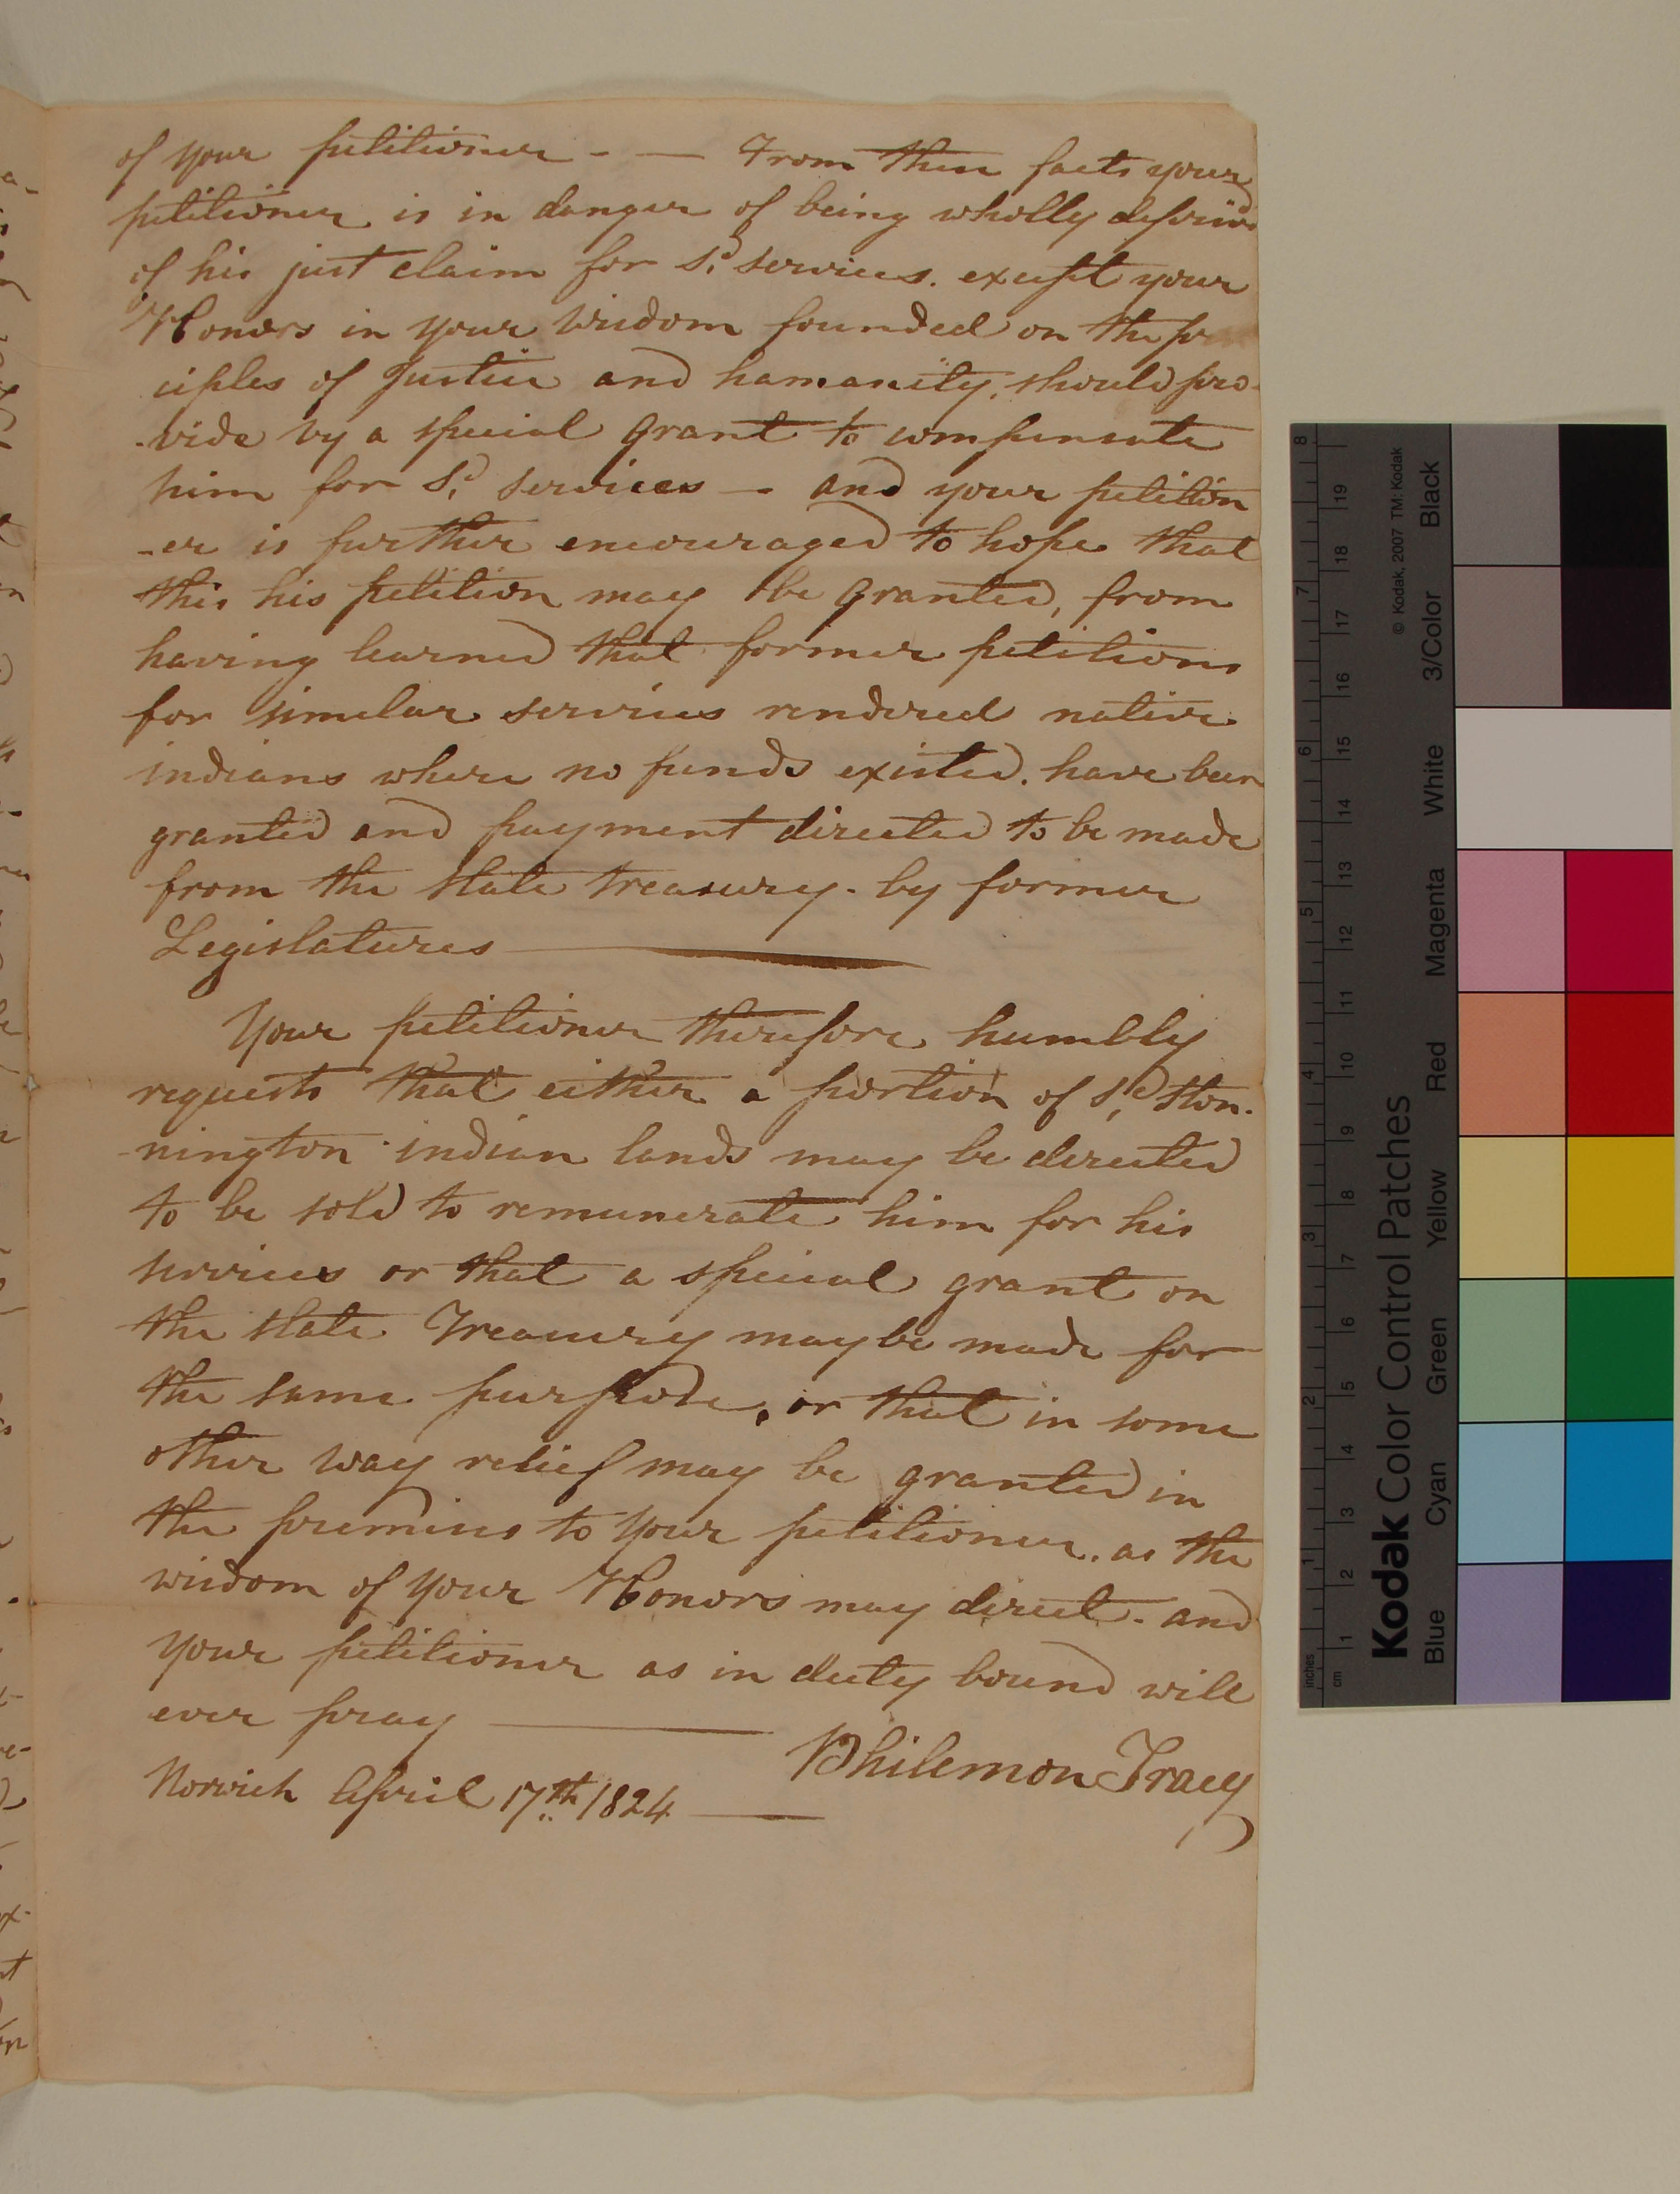 of your petitioner - — From these facts your
petitioner is in danger of being wholly deprived
of his just claim for Sd services. except your
Honors in your wisdom founded on the prin
ciples of Justice and hamanity, should pro-
-vide by a special grant to compensate
him for Sd services — and your petition
-er is further encouraged to hope that
this his petition may be granted, from
having learned that former petitions
for similar services rendered native
indians where no funds existed. have been
granted and payment directed to be made
from the State treasury. by former
Legislatures
Your petitioner therefore humbly
requests that either a portion of Sd Ston-
-nington indian lands may be directed
to be sold to remunerate him for his
services or that a special grant on
the state Treasury may be made for
the same purpose, or that in some
other way relief may be granted in
the premises to your petitioner. as the
wisdom of your Honors may direct. and
your petitioner as in duty bound will
ever pray
Philemon Tracy
Norwich April 17th 1824
Kodak Color Control Patches
© Kodak, 2007 TM: Kodak
Blue Cyan Green Yellow Red Magenta White 3/Color Black
inches 1 2 3 4 5 6 7 8
cm 1 2 3 4 5 6 7 8 9 10 11 12 13 14 15 16 17 18 19